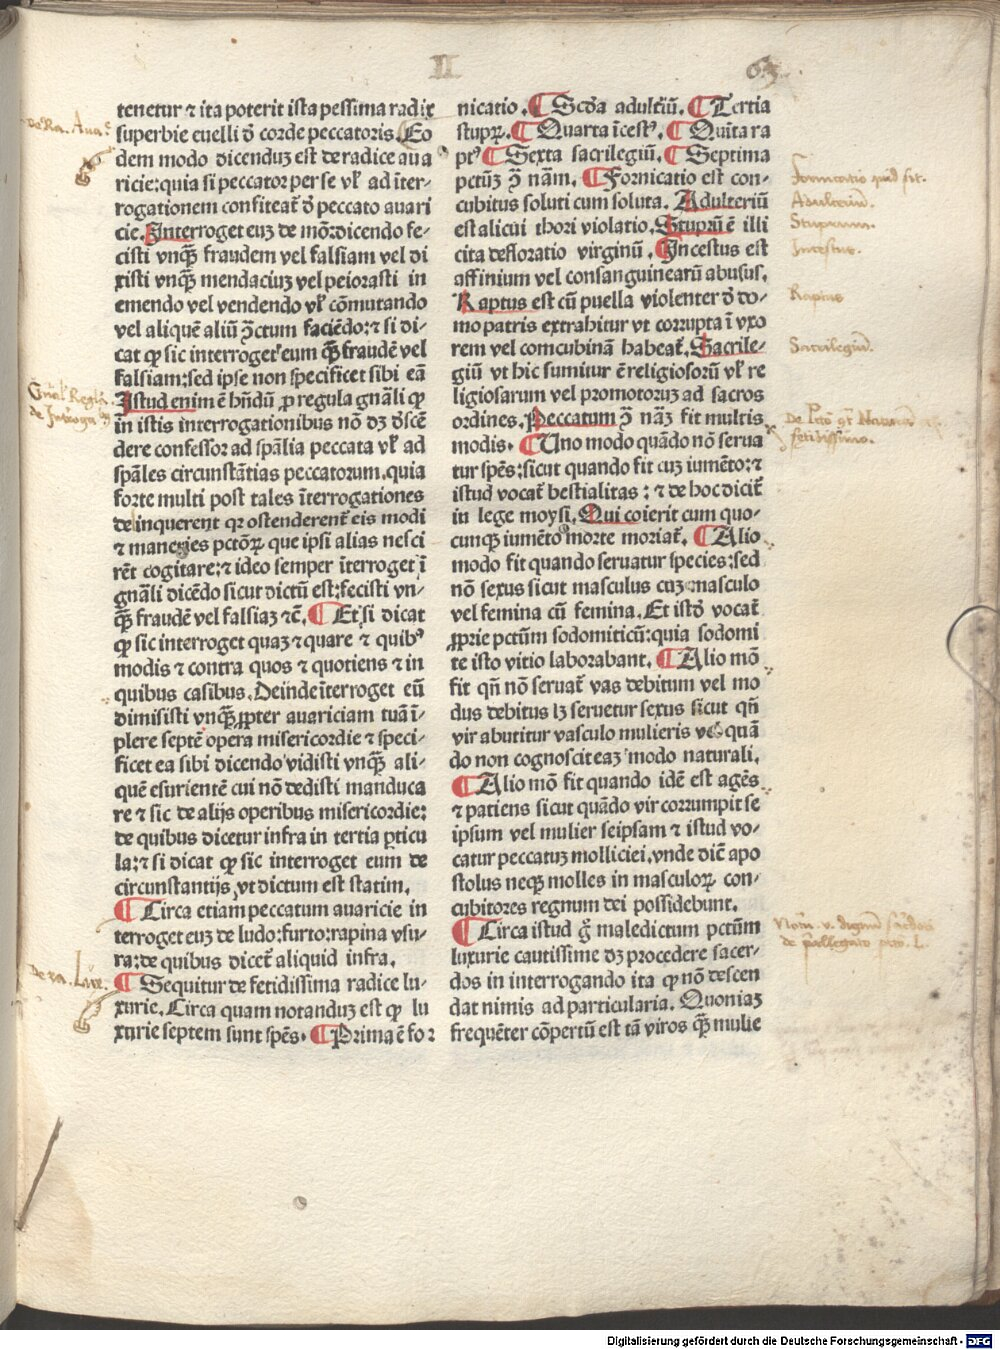 II
63
tenetur ⁊ ita poterit ista pessima radix
superbie euelli ď corde peccatoris. Eo
dem modo dicenduꝫ est de radice aua
ricie: quia si peccator per se vl̕ ad īter⸗
rogationem confiteat᷑ ď peccato auari
cie. Interroget euꝫ de mō dicendo fe⸗
cisti vnqꝫ̃ fraudem vel falsiam vel di
xisti vnqꝫ̃ mendaciuꝫ vel peiorasti in
emendo vel vendendo vl̕ cōmutando
vel aliquē aliū ꝯ̃ctum faciēdo: ⁊ si di⸗
cat ꝙ sic interroget᷑ eum qꝫ̃ fraudē vel
falsiam: sed ipse non specificet sibi eā
Istud enim ē hn̄dū ꝓ regula gn̄ali ꝙ
in istis interrogationibus nō dꝫ d̓scē
dere confessor ad sp̄alia peccata vl̕ ad
sp̄ales circunstātias peccatorum. quia
forte multi post tales īterrogationes
delinquerent qꝛ ostenderent᷑ eis modi
⁊ maneries pctōꝝ que ipsi alias nesci
rēt cogitare: ⁊ ideo semper īterroget ī
gn̄ali dicēdo sicut dictū est: fecisti vn⸗
qꝫ̃ fraudē vel falsiaꝫ ⁊c̄. ¶ Et si dicat
ꝙ sic interroget quaꝫ ⁊ quare ⁊ quibꝰ
modis ⁊ contra quos ⁊ quotiens ⁊ in
quibus casibus. Deinde īterroget eū
dimisisti vnqꝫ̃ ꝓpter auariciam tuā ī⸗
plere septē opera misericordie ⁊ speci⸗
ficet ea sibi dicendo vidisti vnqꝫ̃ ali⸗
quē esurientē cui nō dedisti manduca
re ⁊ sic de alijs operibus misericordie:
de quibus dicetur infra in tertia ꝑticu
la: ⁊ si dicat ꝙ sic interroget eum de
circunstantijs, vt dictum est statim.
¶ Circa etiam peccatum auaricie in
terroget euꝫ de ludo: furto: rapina vsu⸗
ra: de quibus dicet᷑ aliquid infra.
¶ Sequitur de fetidissima radice lu⸗
xurie. Circa quam notanduꝫ est ꝙ lu
xurie septem sunt sp̄es. ¶ Prima ē for
nicatio. ¶ Scd̓a adultiū. ¶ Tertia
stupꝝ. ¶ Quarta īcestꝰ. ¶ Quīta ra
ptꝰ ¶ Sexta sacrilegiū. ¶ Septima
pctūꝫ ꝯ̃ nām. ¶ Fornicatio est con⸗
cubitus soluti cum soluta. Adulteriū
est alicui thori violatio. Stuprū ē illi
cita defloratio virginū. ¶ Incestus est
affinium vel consanguinearū abusus.
Raptus est cū puella violenter ď do⸗
mo patris extrahitur vt corrupta ī vxo
rem vel comcubinā habeat᷑. Sacrile⸗
giū vt hic sumitur ē religiosorū vl̕ re
ligiosarum vel promotoruꝫ ad sacros
ordines. Peccatum ꝯ̃ nāꝫ fit multis
modis. ¶ Uno modo quādo nō serua
tur sp̄es: sicut quando fit cuꝫ iumēto: ⁊
istud vocat᷑ bestialitas: ⁊ de hoc dicit᷑
in lege moysi. Qui coierit cum quo⸗
cunqꝫ iumēto morte moriat᷑. ¶ Alio
modo fit quando seruatur species: sed
nō sexus sicut masculus cuꝫ masculo
vel femina cū femina. Et istď vocat᷑
ꝓprie pctūm sodomiticū: quia sodomi
te isto vitio laborabant. ¶ Alio mō
fit qn̄ nō seruat᷑ vas debitum vel mo
dus debitus lꝫ seruetur sexus sicut qn̄
vir abutitur vasculo mulieris vel quā
do non cognoscit eaꝫ modo naturali.
¶ Alio mō fit quando idē est agēs
⁊ patiens sicut quādo vir corrumpit se
ipsum vel mulier seipsam ⁊ istud vo⸗
catur peccatuꝫ molliciei. vnde dic̄ apo
stolus neqꝫ molles in masculoꝝ con⸗
cubitores regnum dei possidebunt.
¶ Circa istud g̓ maledictum pctūm
luxurie cautissime dꝫ procedere sacer⸗
dos in interrogando ita ꝙ nō descen
dat nimis ad particularia. Quoniaꝫ
frequēter cōpertū est tā viros qꝫ̃ mulie
de Ra. Aua.
de ra. Lux.
fornicatio quid sit.
Adulteriū.
Stuprum.
Incestus.
Raptus
Sacrilegiū.
fetidissimo.
Digitalisierung gefördert durch die Deutsche Forschungsgemeinschaft - DFG